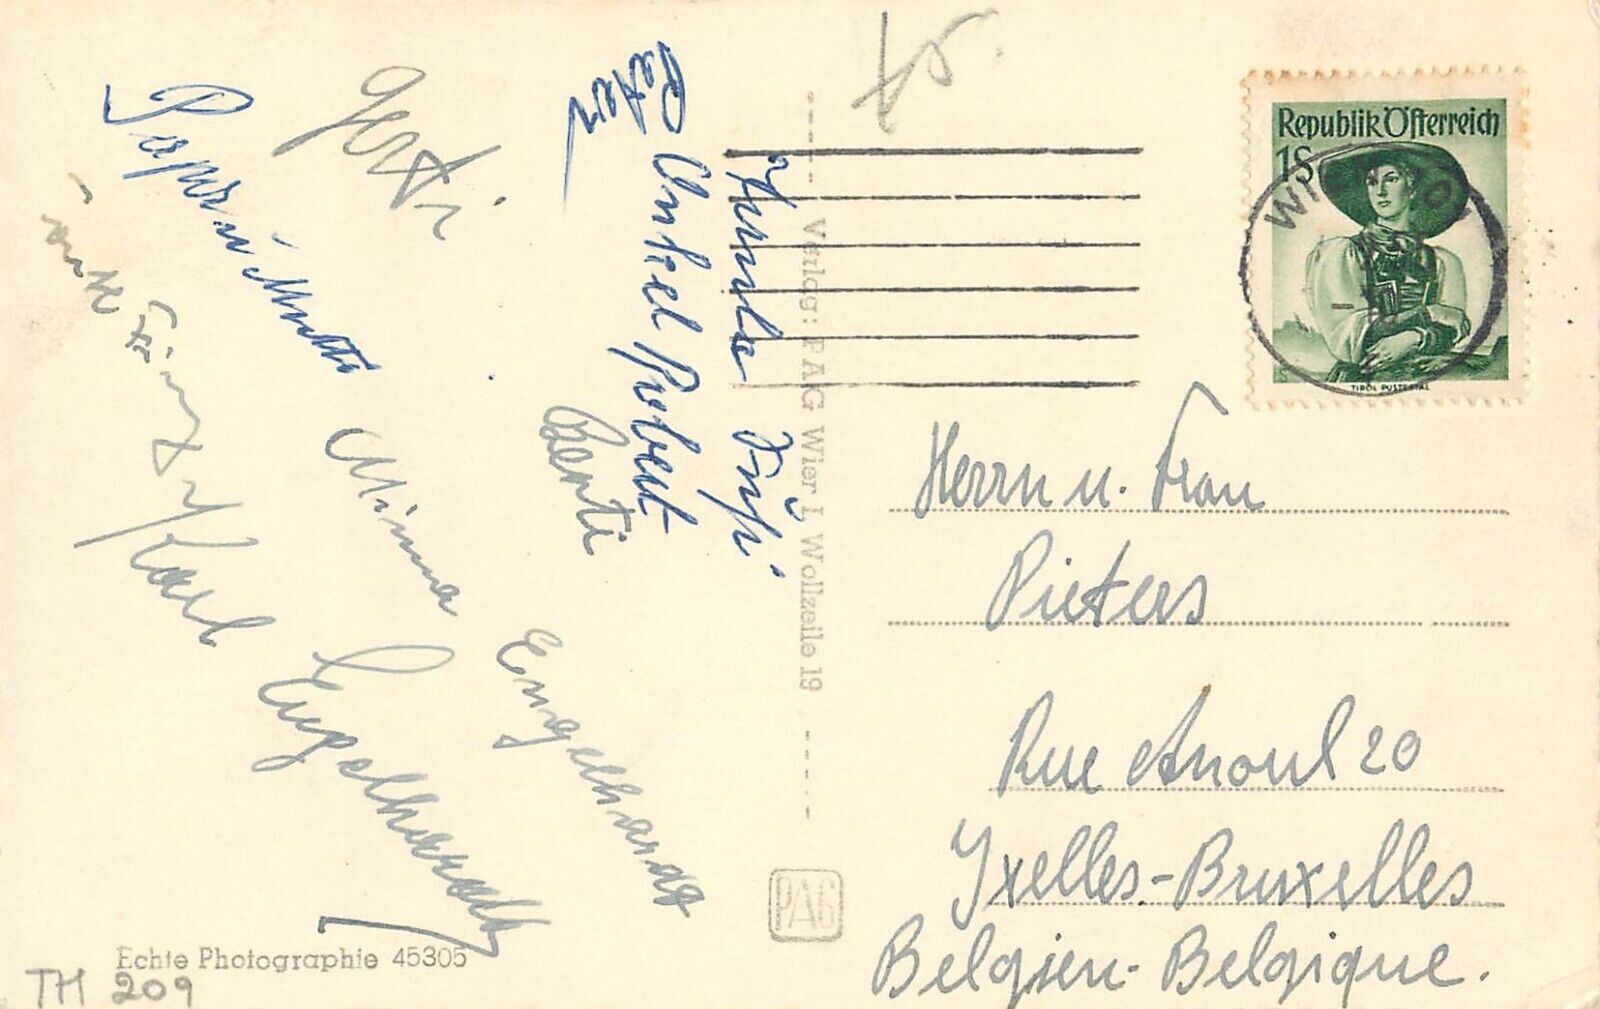 Gerti
Peter
Papa u. Mutti
Onkel Robert
Berti
Minna
Karl
Engelhardt
Engelhardt
Verlag: PAG Wien I, Wollzeile 19
PAG
Echte Photographie 45305
TH 209
Republik Österreich
1S
TIROL PUSTERTAL
WIEN
Herrn u. Frau
Pieters
Rue Anoul 20
Yxelles-Bruxelles
Belgien-Belgique.